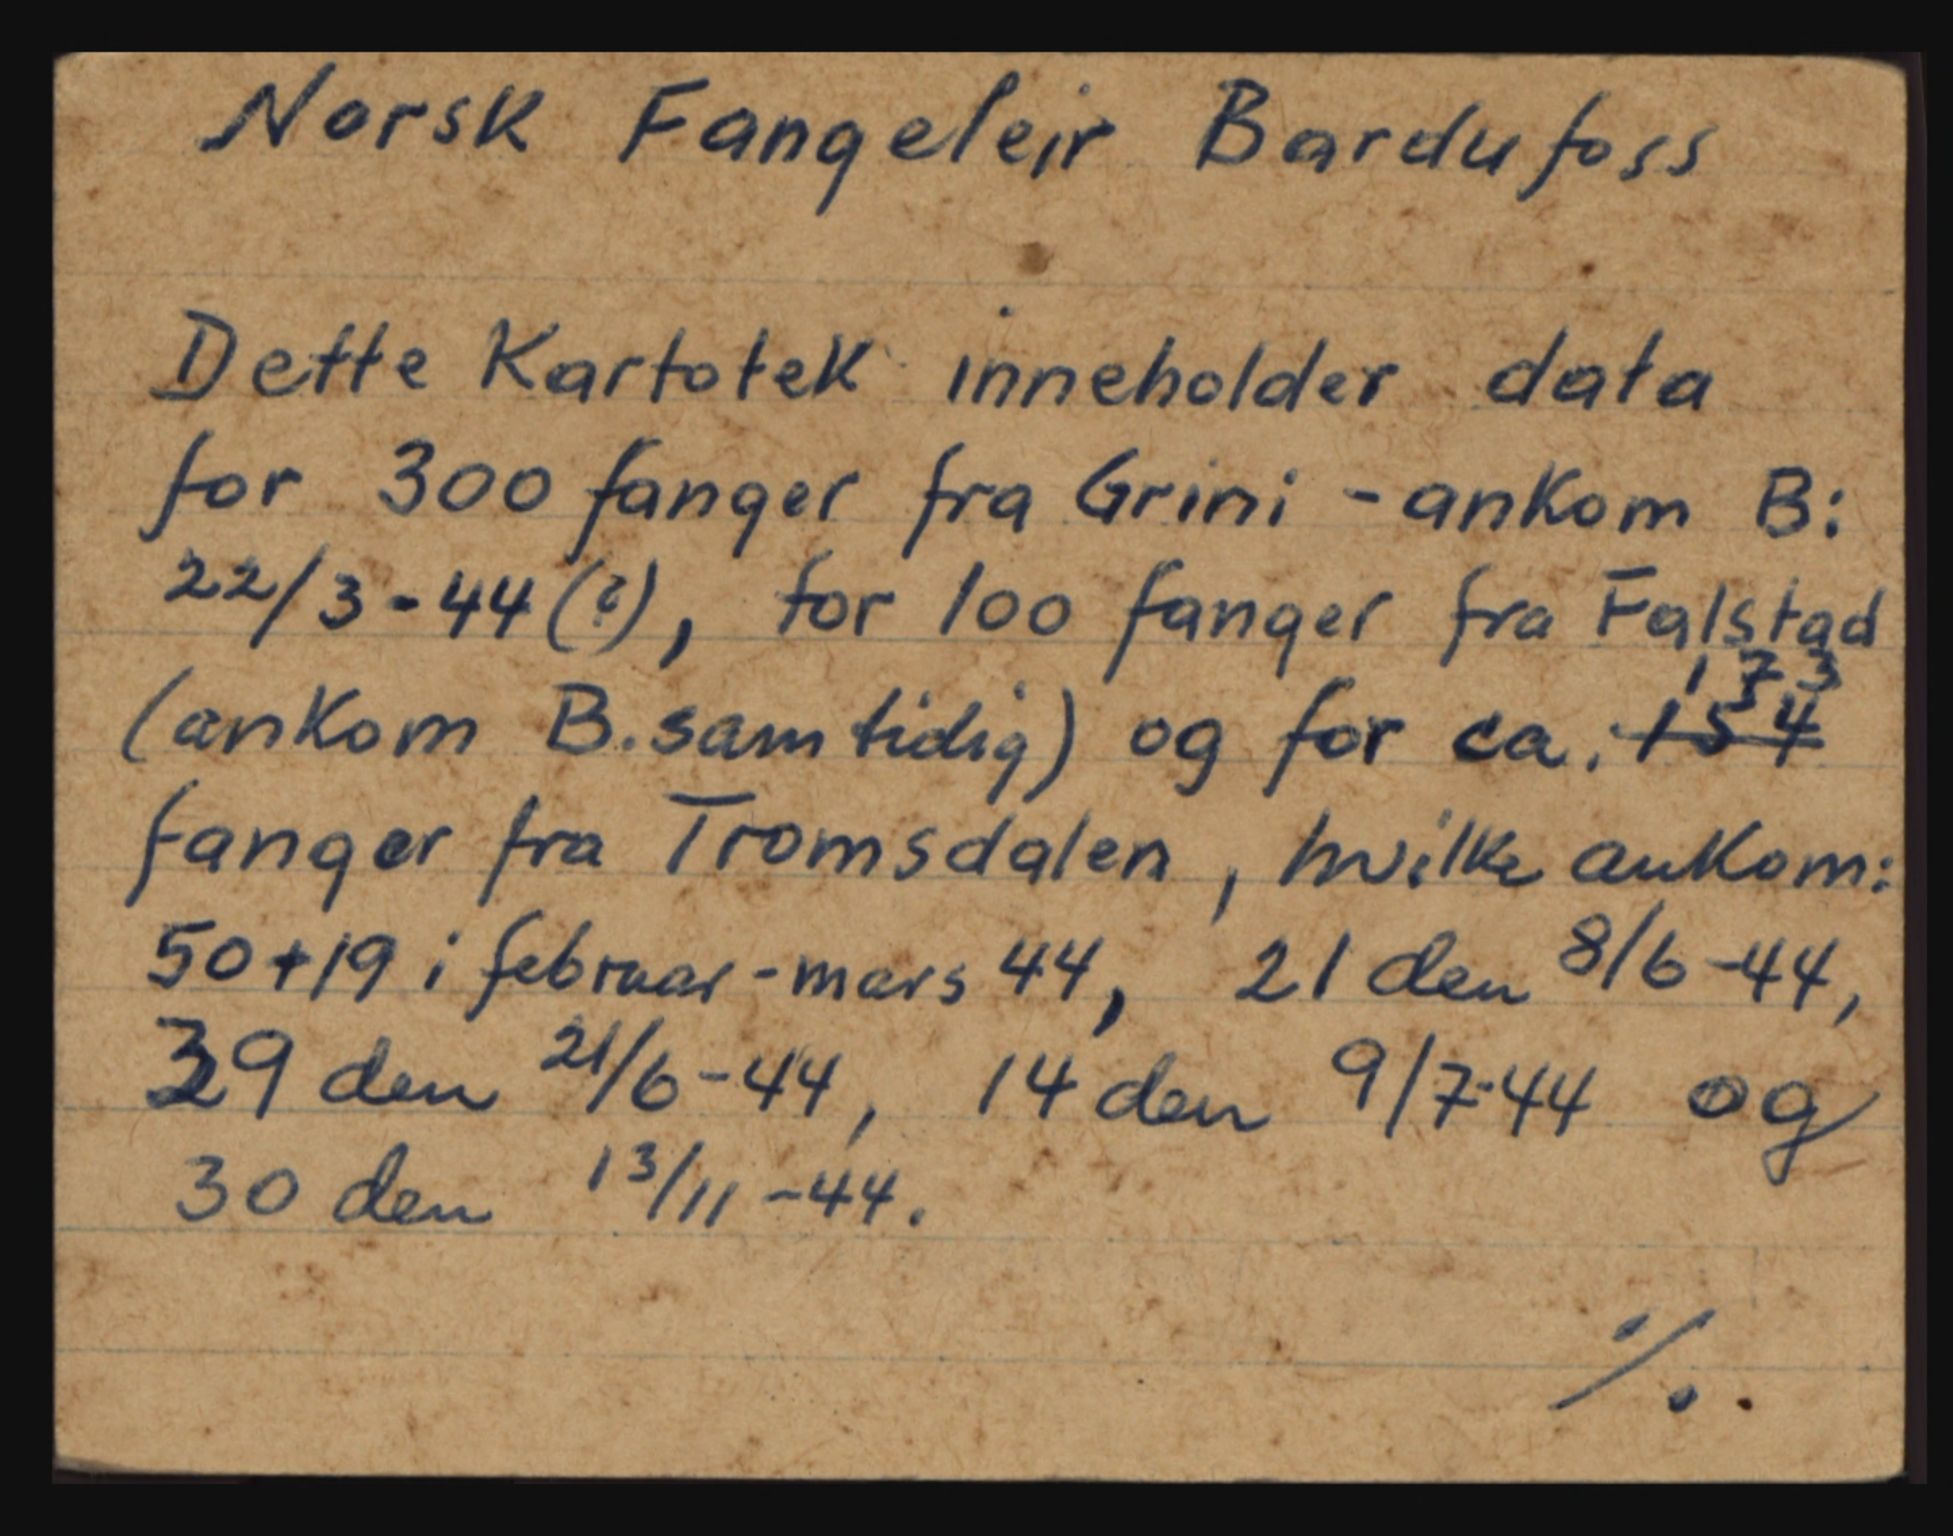 Norsk Fangeleir Bardufoss
Dette Kartotek inneholder data
for 300 fanger fra Grini - ankom B:
22/3-44(?), for 100 fanger fra Falstad
(ankom B. samtidig) og for ca. 154 173
fanger fra Tromsdalen, hvilke ankom:
50+19 i februar-mars 44, 21 den 8/6-44,
39 den 21/6-44, 14 den 9/7-44 og
30 den 13/11-44.
./.